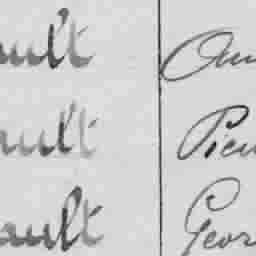 ault Am
ault Pier
ault Geor